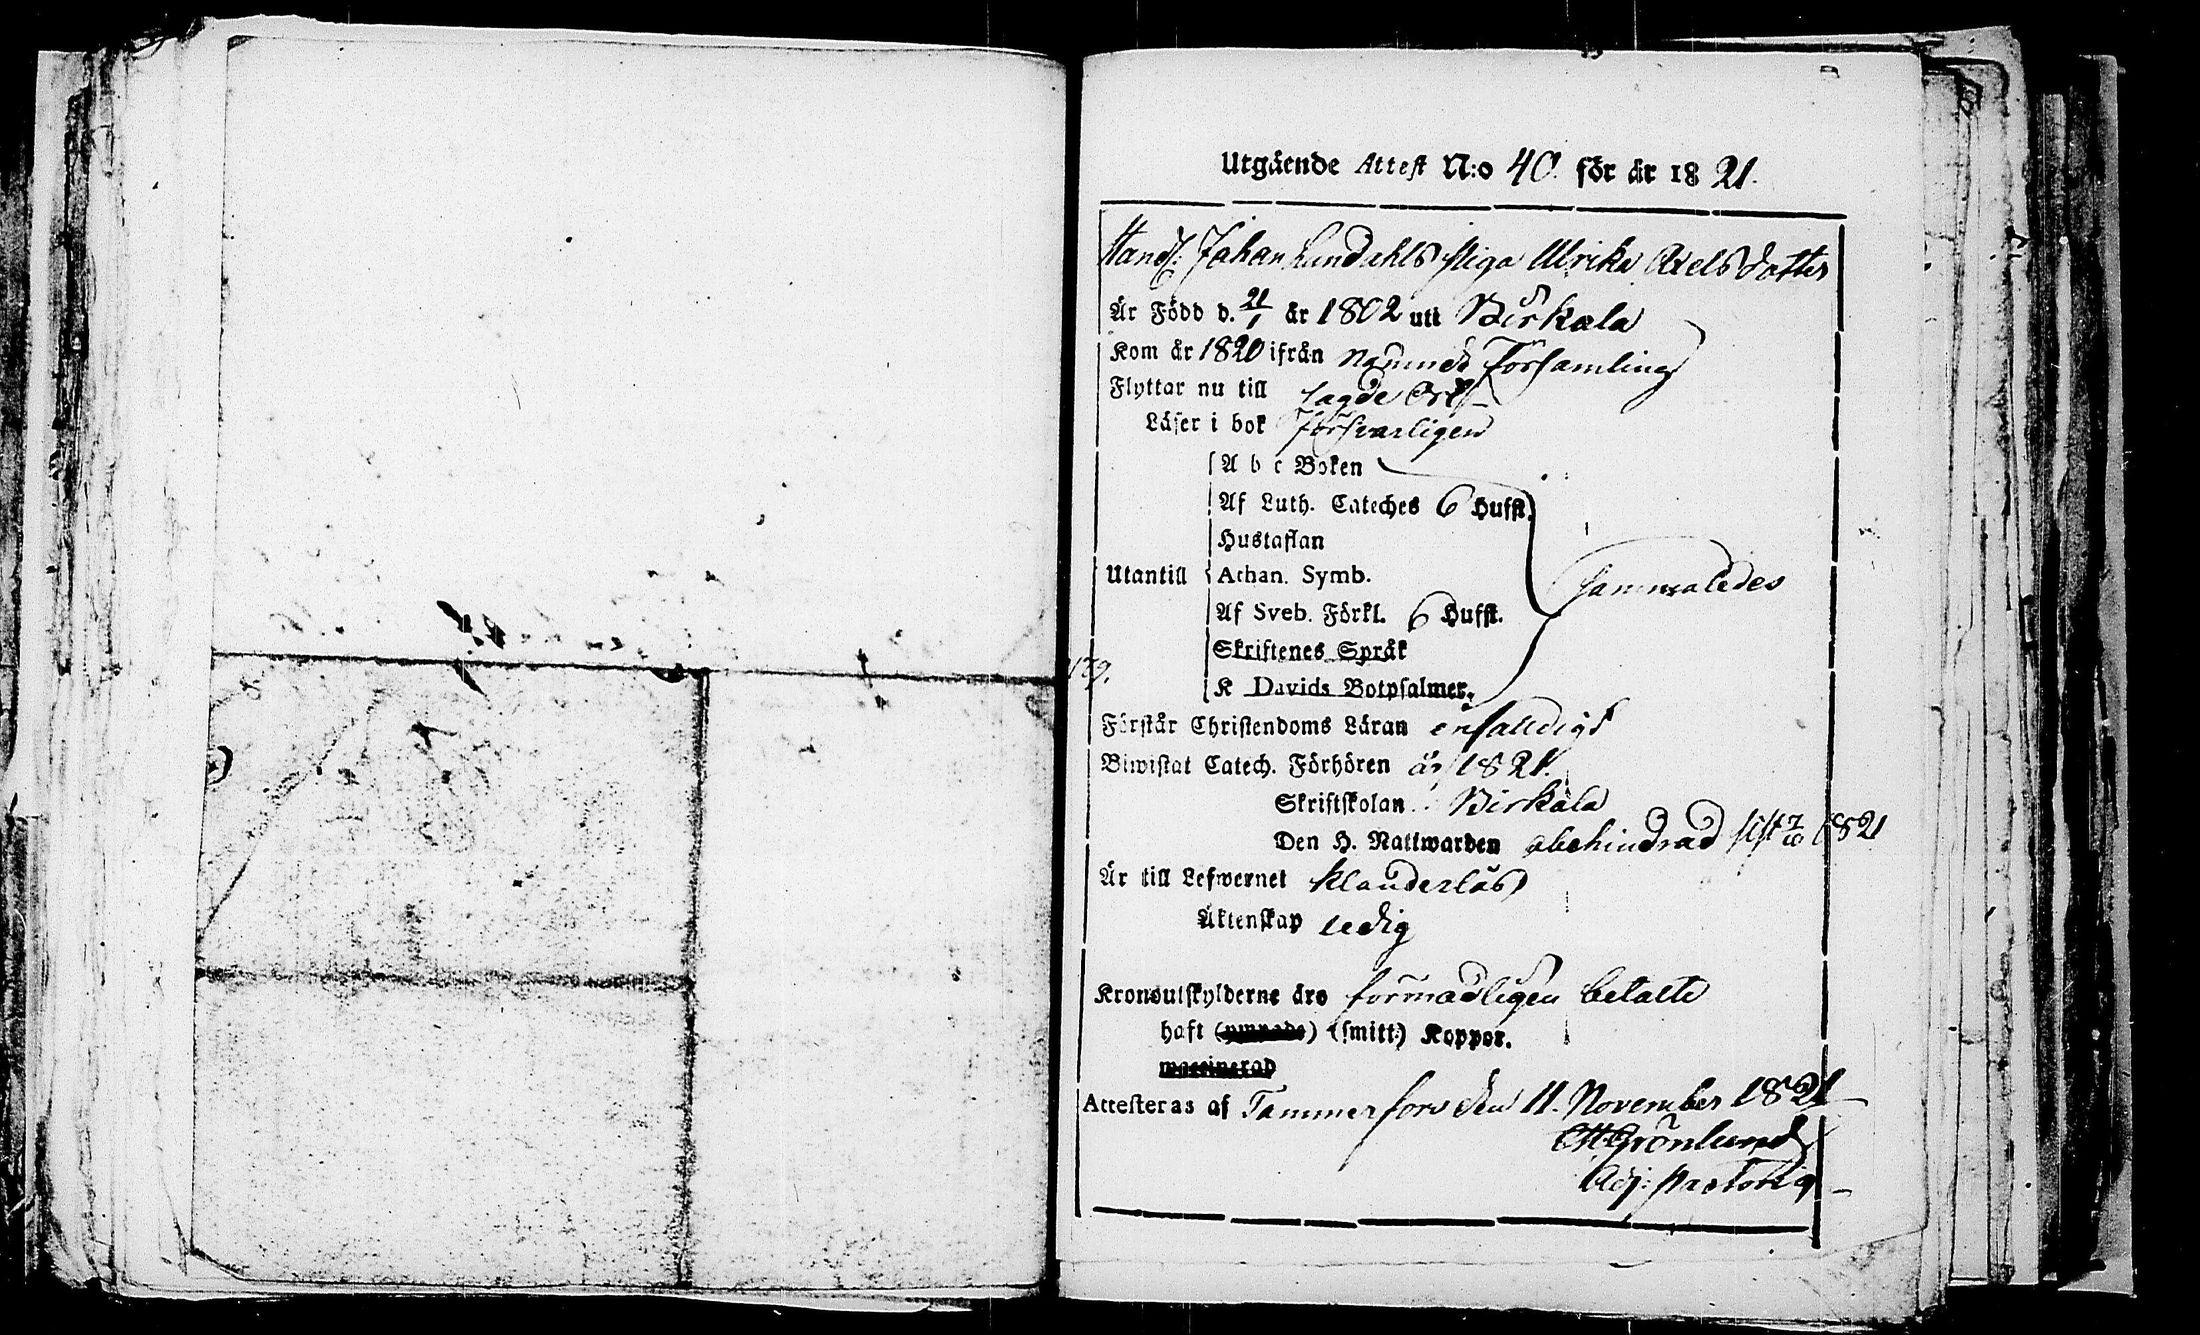 Utgående Attest N:o 40. för år 1821.
Handl: Johan Lundahls Piga Ulrika Axels dotter
Är Född d. 21/1 år 1802 uti Birkala
Kom år 1820 ifrån nämnde Församling
Flyttar nu till sagde Ort
Läser i bok försvarligen
A b c Boken
Af Luth. Cateches 6 Hufst.
Hustaflan
Utantill Athan. Symb. sammaledes
Af Sveb. Förkl. 6 Hufst.
Skriftenes Språk
139.
K Davids Botpsalmer.
Förstår Christendoms Läran enfaldigt
Biwistat Catech. Förhören år 1821.
Skriftskolan i Birkala
Den H. Nattwarden obehindrad sist 7/10 1821
Är till Lefwernet klanderlös
Äktenskap ledig
Kronoutskylderne äro förmodligen betalte
haft (ympade) (smitt.) Koppor.
vaccinerad
Attesteras af Tammerfors den 11. November 1821
Grönlund
Adj: Pastoris